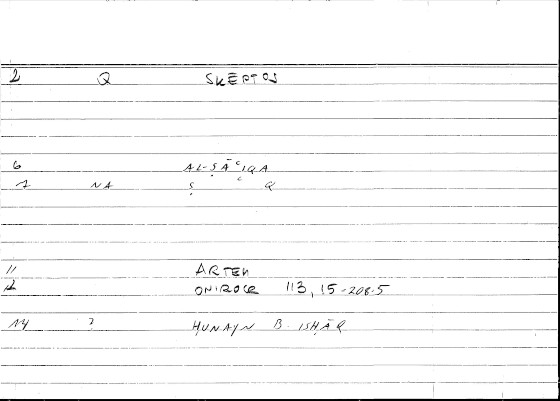 2 Q SKEPTOS
6 AL-ṢĀʿIQA
7 NA Ṣ ʿ Q
11 ARTEM
12 ONIROCR 113, 15-208.5
14 ? ḤUNAYN B. ISḤĀQ